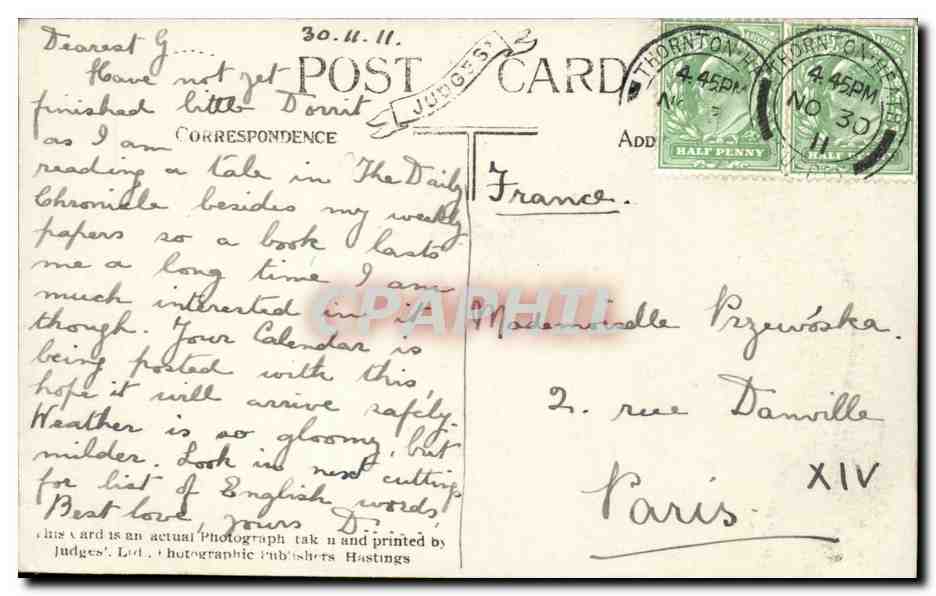 30.11.11.
Dearest G.....
Have not yet
finished little Dorrit
as I am
reading a tale in The Daily
Chronicle besides my weekly
papers so a book lasts
me a long time I am
much interested in it
though. Your Calendar is
being posted with this,
hope it will arrive safely.
Weather is so gloomy, but
milder. Look in next cuttings
for list of English words,
Best love, yours D....
POST CARD
JUDGES'
CORRESPONDENCE
THORNTON HEATH
4.45PM
NO 30
11
THORNTON HEATH
4.45PM
HALF PENNY
HALF
France.
Mademoiselle Przewóska.
2. rue Danville
XIV
Paris.
CPAPHIL
This Card is an actual Photograph taken and printed by
Judges', Ltd., Photographic Publishers Hastings